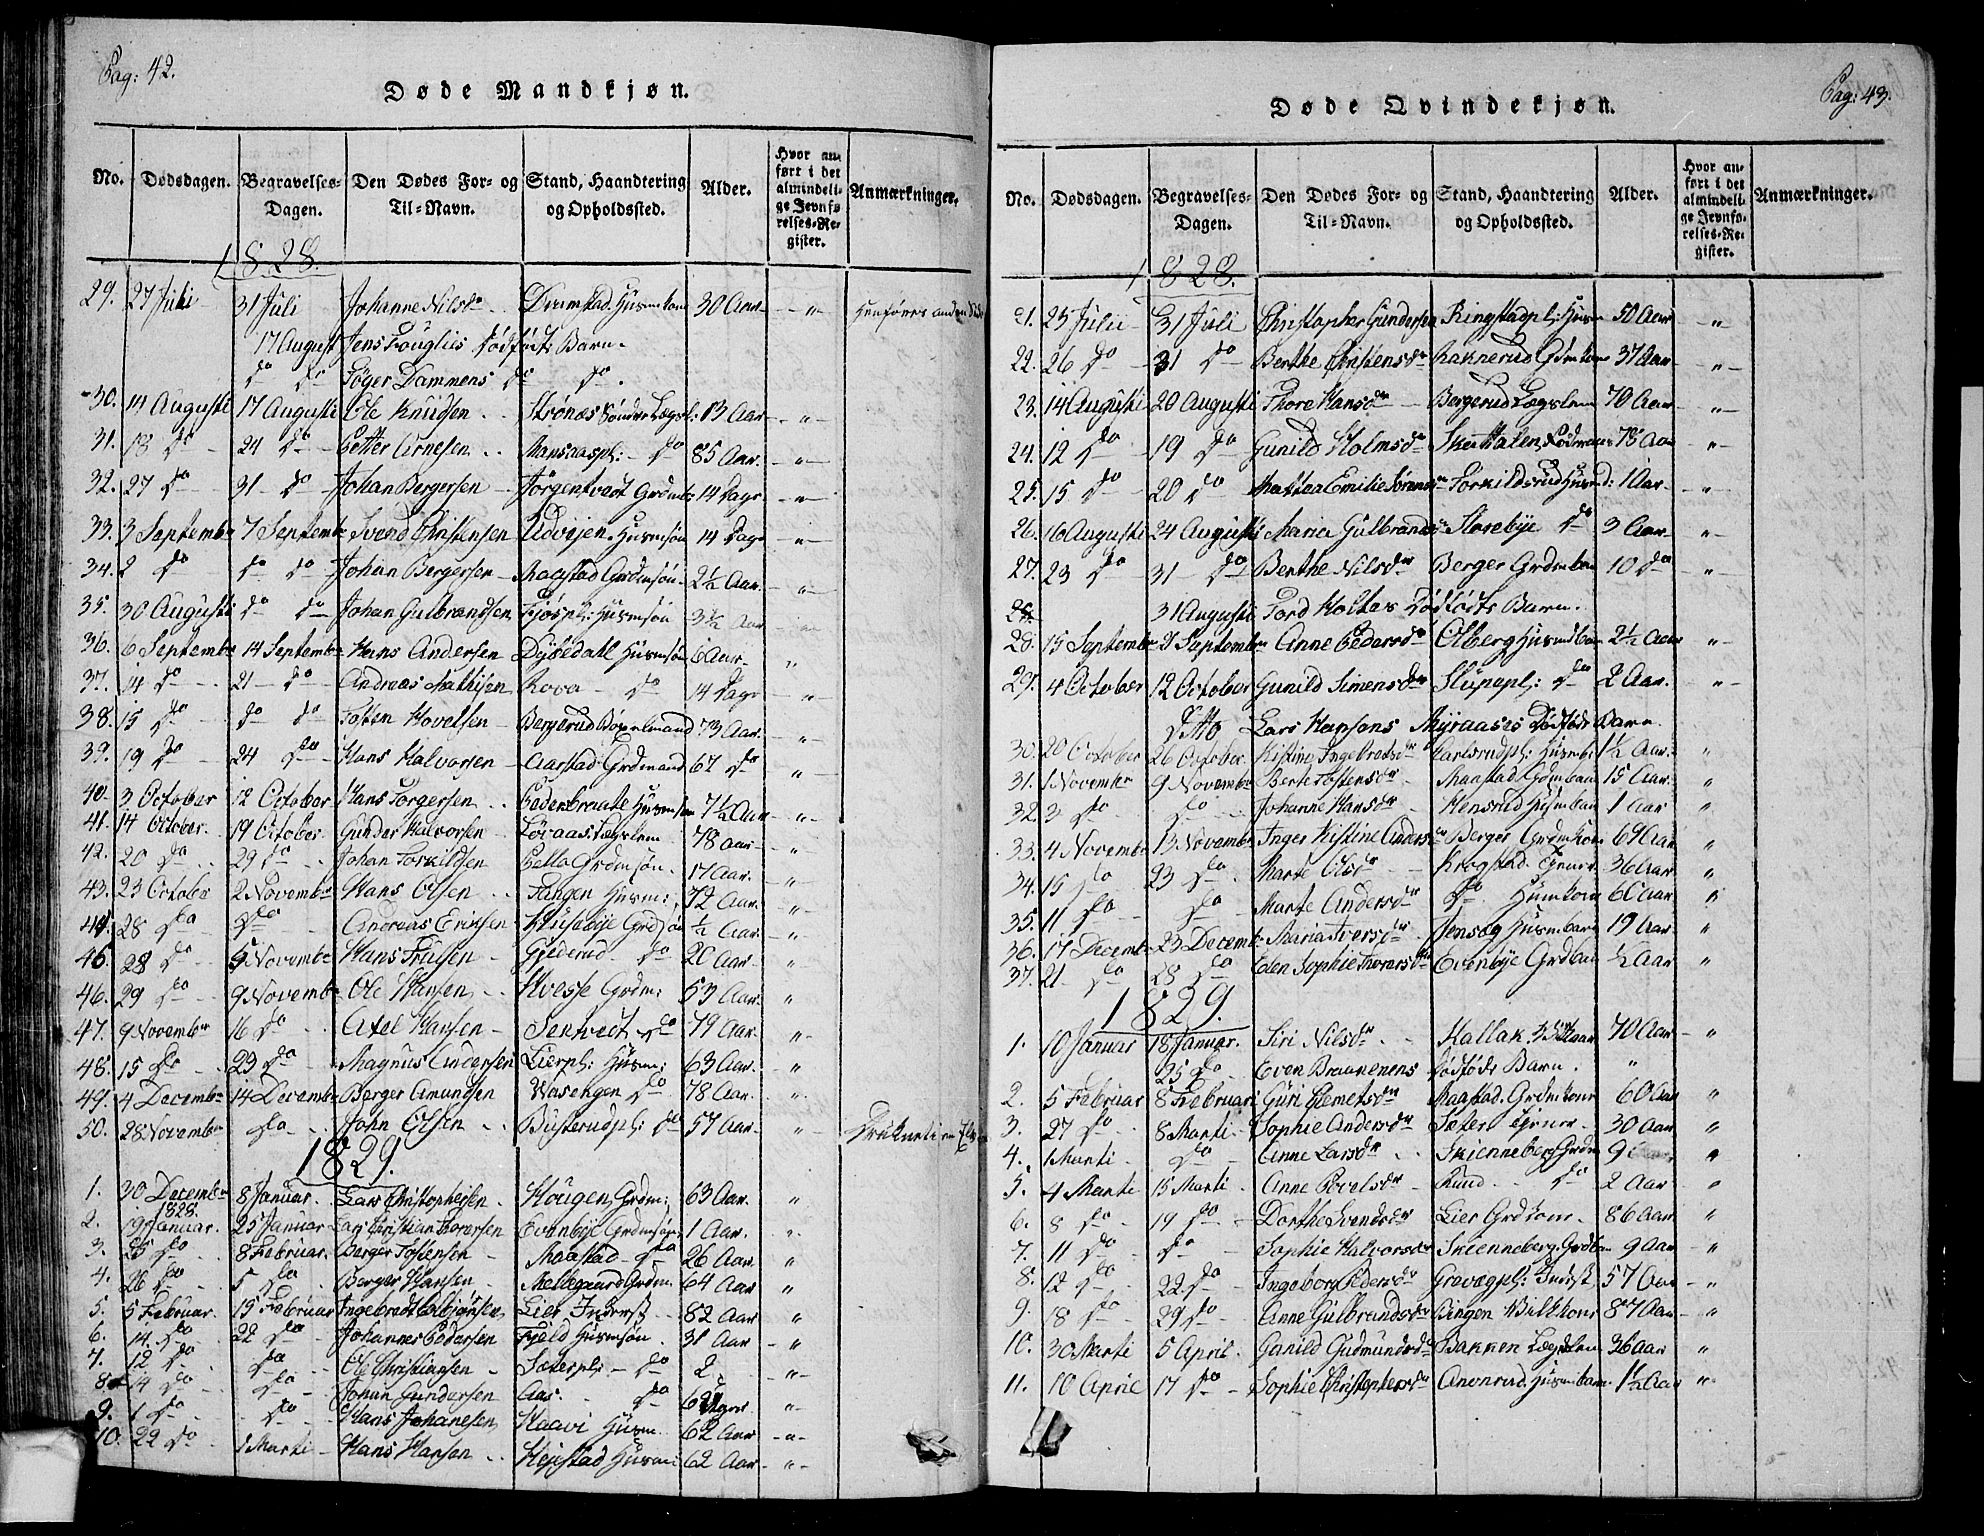 Pag: 42.
Døde Mandkjøn.
No. Dødsdagen. Begravelses-Dagen. Den Dødes For- og Til-Navn. Stand, Haandtering og Opholdssted. Alder. Hvor anført i det almindelige Jevnførelses-Register. Anmærkninger.
1828.
29. 27 Juli 31 Juli Johanne Nilsdr Husmbarn 30 Aar " Henføres
17 August Jens Fouglies dødfødt Barn.
do do Tøger Dammens do do.
30. 14 Augusti 17 Augusti Ole Knudsen Strønæs Søndre Lægsl: 13 Aar "
31. 18 do 24 do Petter Arnesen Mansaaspl: do 85 Aar. "
32. 27 do 31 do Johan Bergersen Jørgentvedt Grdmbr 14 Dage "
33. 3 Septembr 7 Septembr Svend Christensen Udvejen Husmsøn 14 Dage "
34. 2 do do do Johan Bergersen Maastad Grdmsøn 2½ Aar. "
35. 30 Augusti do do Johan Gulbrandsen Fjøspl: Husmsøn 3½ Aar "
36. 6 Septembr 14 Septembr Hans Andersen Dysedahl Husmsøn 6 Aar "
37. 14 do 21 do Andreas Mathisen Rova do 14 Dage "
38. 15 do do do Totten Hovelsen Bergerud 73 Aar. "
39. 19 do 24 do Hans Halvorsen Aarstad Grdmand 67 do "
40. 3 October 12 October Hans Torgersen Pedersbraate Husmsøn 7½ Aar "
41. 14 October. 19 October Gunder Halvorsen Løvaas Lægslem 78 Aar "
42. 20 do 29 do Johan Torkildsen Pella Grdmsøn. 17 Aar. "
43. 23 October 2 Novembr Hans Olsen Tangen Husm: 72 Aar. "
44. 28 do do Andreas Eriksen Huseböye Grdsøn ½ Aar. "
45. 28 do 9 Novembr Hans Truelsen Gjederud do 20 Aar. "
46. 29 do 9 Novembr Ole Hansen Hvesse Grdm: 53 Aar. "
47. 9 Novembr 16 do Axel Hansen Sentvedt do 79 Aar. "
48. 15 do 23 do Magnus Andersen Lierpl: Husm: 63 Aar. "
49. 4 Decembr 14 Decembr Berger Amundsen Wasengen do 78 Aar. "
50. 28 Novembr do John Olsen Busterudpl: do 57 Aar. " Druknet i
1829.
1. 30 Decembr 1828. 8 Januar. Lars Christophersen Hougen Grdm: 63 Aar. "
2. 19 Januar. 25 Januar Lars Christian Torersen Evenbye Grdmsøn 1 Aar. "
3. 25 do 8 Februar. Berger Tostensen Maastad do 26 Aar "
4. 26 do 5 do Berger Hansen Mellegaard Grdm. 64 Aar "
5. 5 Februar. 15 Februar Ingebredt Colbjørnsen Lier Inderst 82 Aar "
6. 14 do 22 do Johannes Pedersen Fjeld Husmsøn. 31 Aar "
7. 12 do do Ole Christiansen Sæterpl: do 2 "
8. 14 do do Johan Gundersen Aas do 6 "
9. 1 do do Hans Johanesen Haavi Husm. 62 Aar "
10. 22 do 1 Marti Hans Hansen Hejestad Husm: 62 Aar "
Pag: 43.
Døde Qvindekjøn.
No. Dødsdagen. Begravelses-Dagen. Den Dødes For- og Til-Navn. Stand, Haandtering og Opholdssted. Alder. Hvor anført i det almindelige Jevnførelses-Register. Anmærkninger.
1828.
21. 25 Julii 31 Juli Christopher Gundersen Ringstadpl: Husm 50 Aar "
22. 26 do 31 do Berthe Christensdr Raknerud Grdmkone 37 Aar "
23. 14 Augusti 20 Augusti Thore Hansdr Bergerud Lægslem 70 Aar "
24. 12 do 19 do Gunild Holmsdr Skerthalen Føderaad 78 Aar "
25. 15 do 20 do Mattea Emilie Torkildsrud Husmd: 1 Aar "
26. 16 Augusti 24 Augusti Maria Gulbrandsdr Storebye do 3 Aar "
27. 23 do 31 do Berthe Nilsdr Berger Grdmbarn 10 do "
31 Augusti Tord Holters Dødfødt Barn.
28. 15 Septembr 21 Septembr Anne Pedersdr Olberg Husmbarn 2½ Aar "
29. 4 October 12 October Gunild Simensdr Slupepl: do 2 Aar. "
Ditto Lars Hansens Myraases Dødfødt Barn.
30. 20 October 26 October Kistine Ingebredsdr Carlsrudpl: Husmb: 1½ Aar. "
31. 1 Novembr 9 Novembr Berte Tostensdr Maastad Grdmbarn 15 Aar. "
32. 3 do do Johanne Hansdr Hensrud Husmbarn 1 Aar "
33. 4 Novembr 13 Novembr Inger Kistine Andersdr Berger Grdmkone 69 Aar "
34. 15 do 23 do Marte Olsdr Krogstad 36 Aar "
35. 11 do do Marte Andersdr do Husmkone 60 Aar "
36. 17 Decembr 23 Decembr Maria Iversdr Jensæg Husmbarn 19 Aar "
37. 21 do 28 do Eden Sophie Thorersdr Evenbye Grdbarn ½ Aar "
1829.
1. 10 Januar 18 Januar. Siri Nilsdr Hallak 70 Aar "
25 do Even Braanenens dødfødt Barn. "
2. 5 Februar 8 Februari Guri Clemetsdr Maastad Grdmkone 60 Aar "
3. 27 do 8 Marti Sophie Andersdr Sæter 30 Aar "
4. 1 Marti do Anne Larsdr Skienneberg Grdm 9 "
5. 4 Marti 15 Marti Anne Povelsdr Rund do 2 Aar "
6. 8 do 19 do Dorthe Svendsdr Lier 86 Aar "
7. 11 do do Sophie Halvorsdr Skienneberg Grdbarn 9 Aar "
8. 12 do 22 do Ingeborg Pedersdr Grevægpl: Inderst 57 Aar "
9. 18 do 29 do Anne Gulbrandsdr Bingen 87 Aar "
10. 30 Marti 5 April. Gunild Gudmundsdr Bakken Lægslem 36 Aar "
11. 10 April 17 do Sophie Christophersdr Anonrud Husmbarn. 1½ Aar "